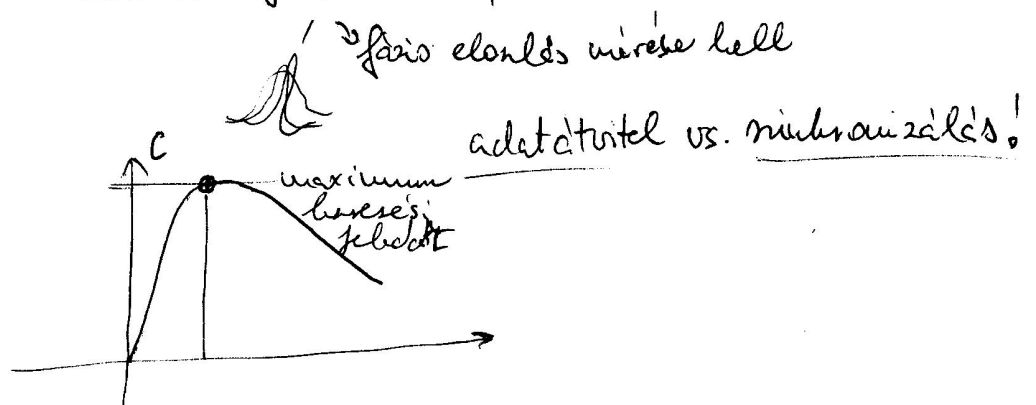 fázis eloszlás mérése kell
adatátvitel vs. szinkronizálás!
C
maximum
keresési
feladat